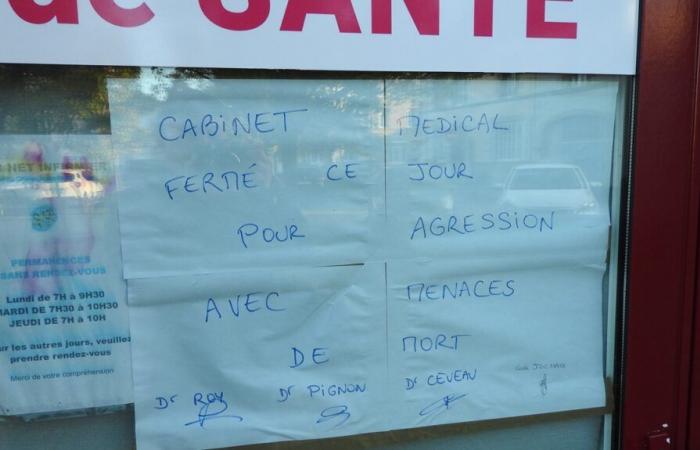 de SANTÉ
CABINET MEDICAL
FERMÉ CE JOUR
POUR AGRESSION
AVEC MENACES
DE MORT
Dr ROY Dr PIGNON Dr CEVEAU
PERMANENCES
SANS RENDEZ-VOUS
Lundi de 7H à 9H30
MARDI DE 7H30 à 10H30
JEUDI DE 7H à 10H
les autres jours, veuillez
prendre rendez-vous
Merci de votre compréhension